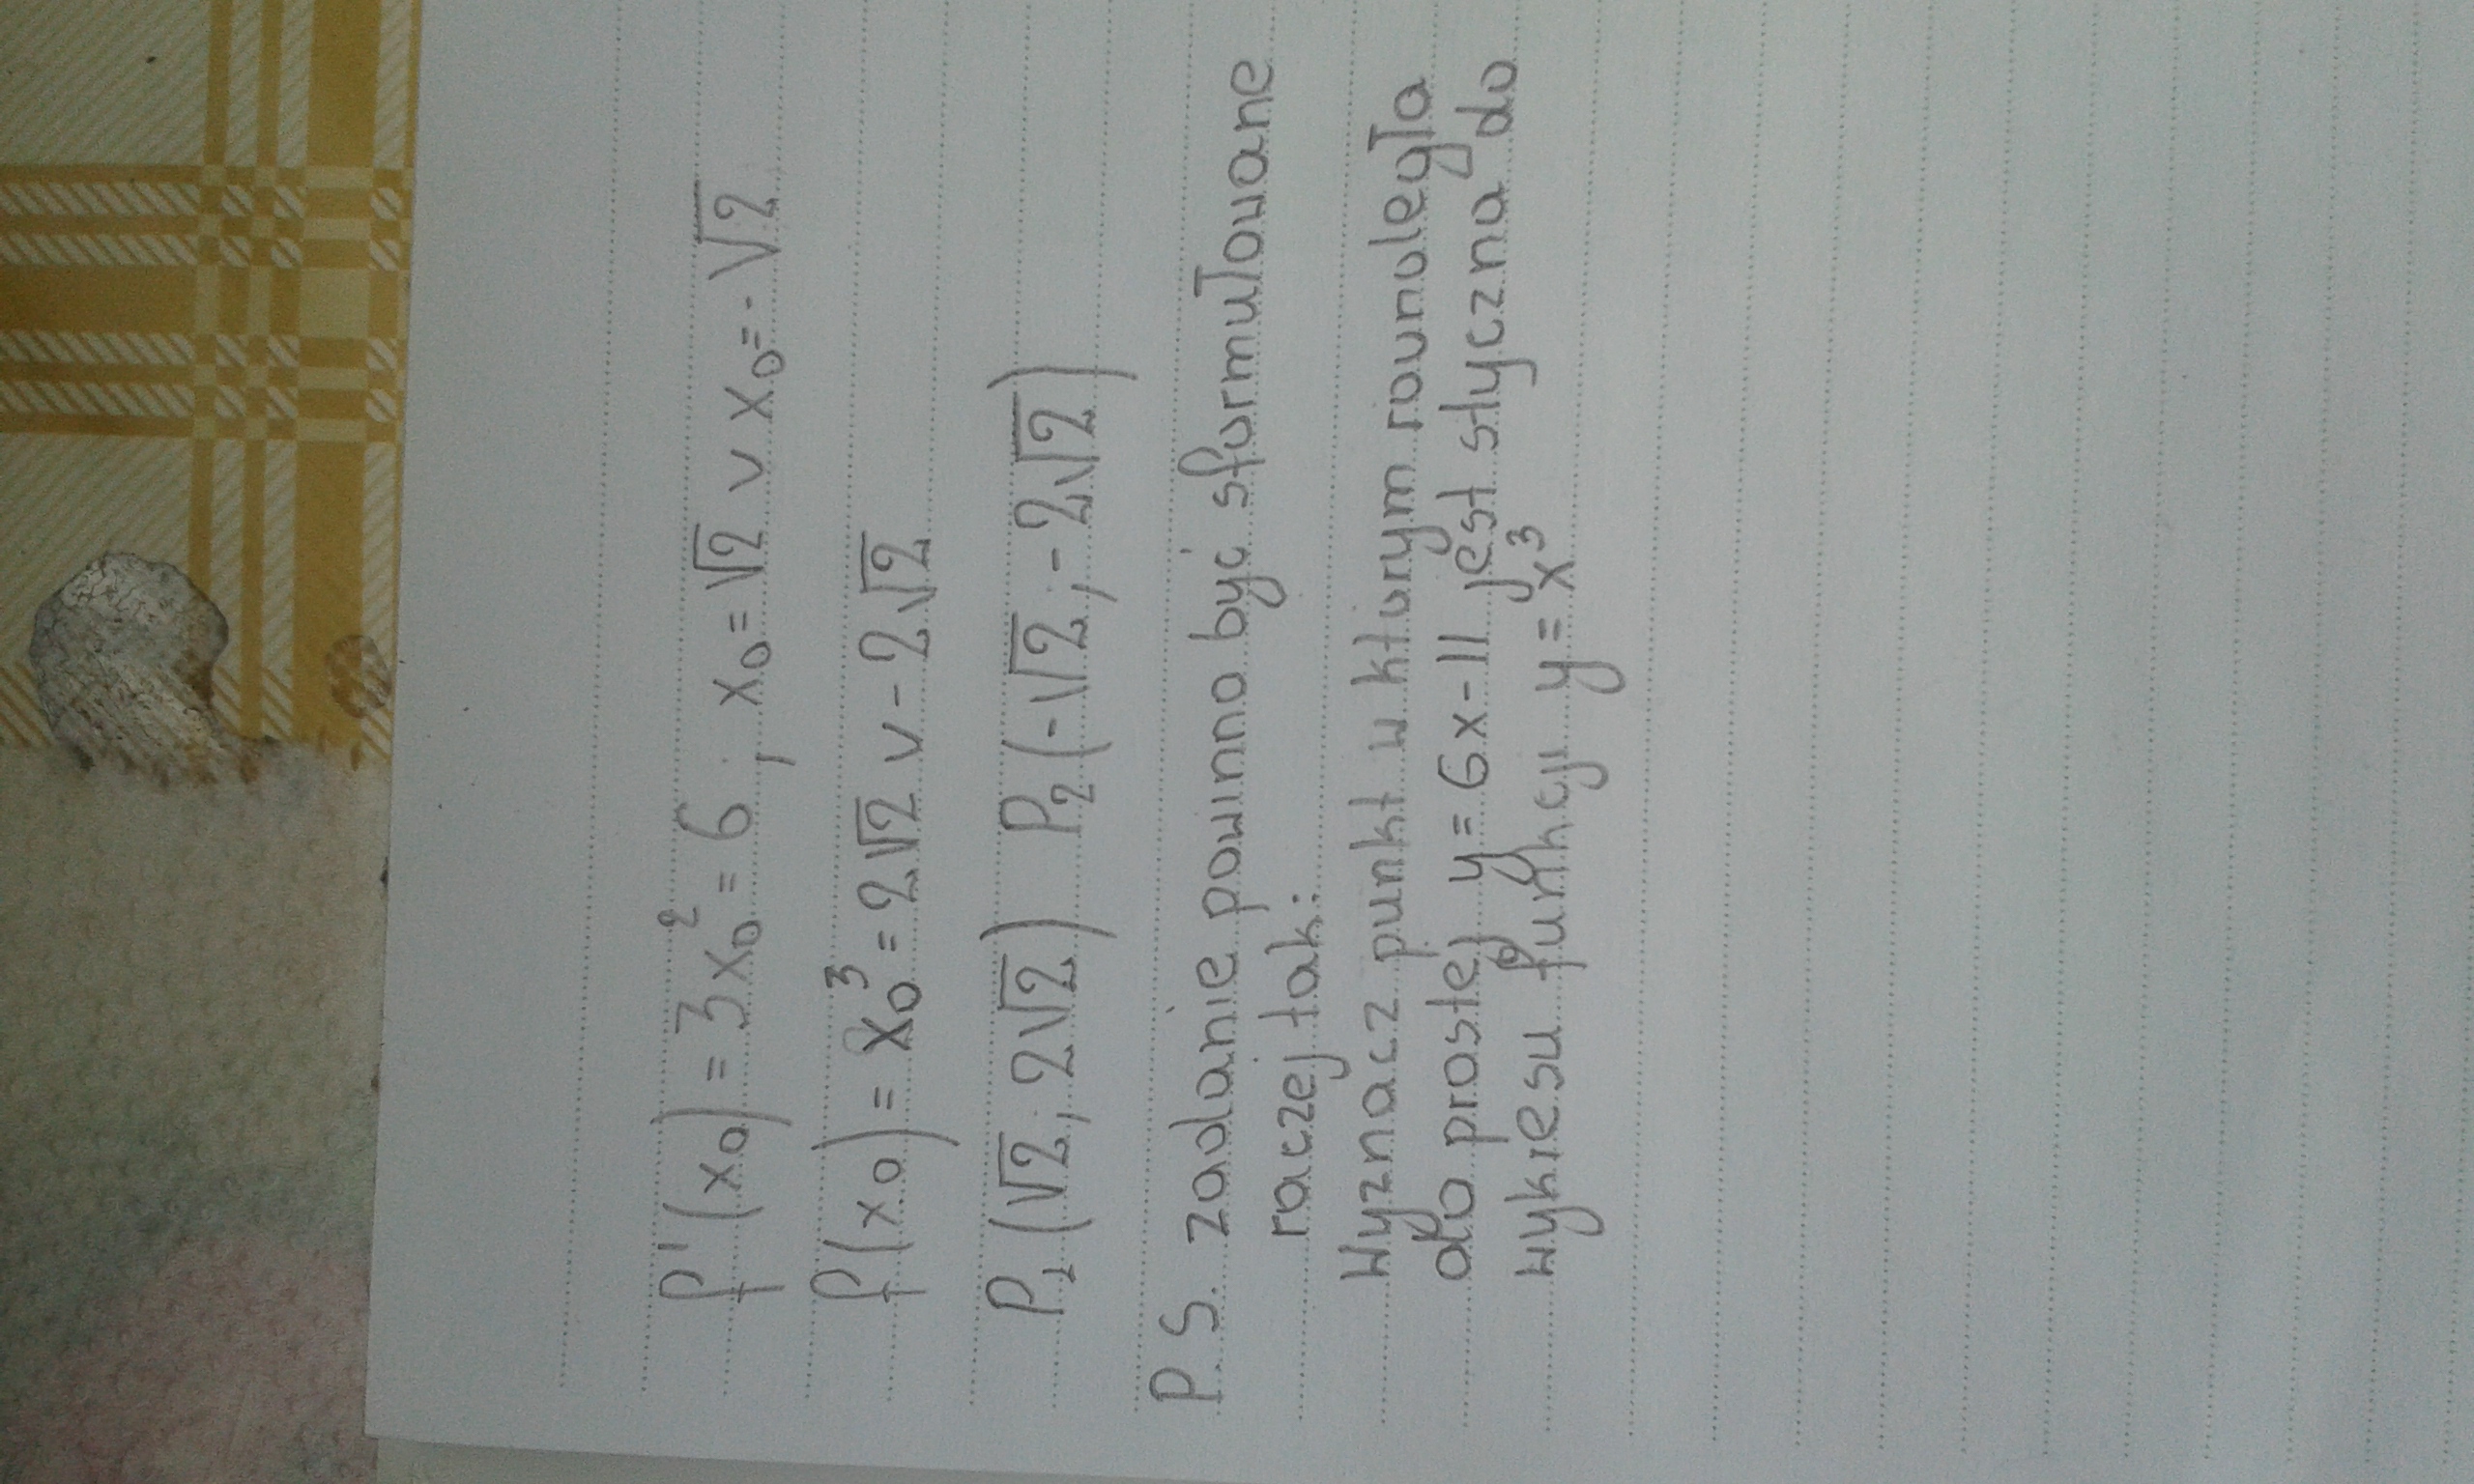 f'(x₀) = 3x₀² = 6 ; x₀ = √2 v x₀ = -√2
f(x₀) = x₀³ = 2√2 v - 2√2
P₁(√2 ; 2√2) P₂(-√2 ; -2√2)
P.S. zadanie powinno być sformułowane
raczej tak:
Wyznacz punkt w którym równoległa
do prostej y = 6x - 11 jest styczna do
wykresu funkcji y = x³